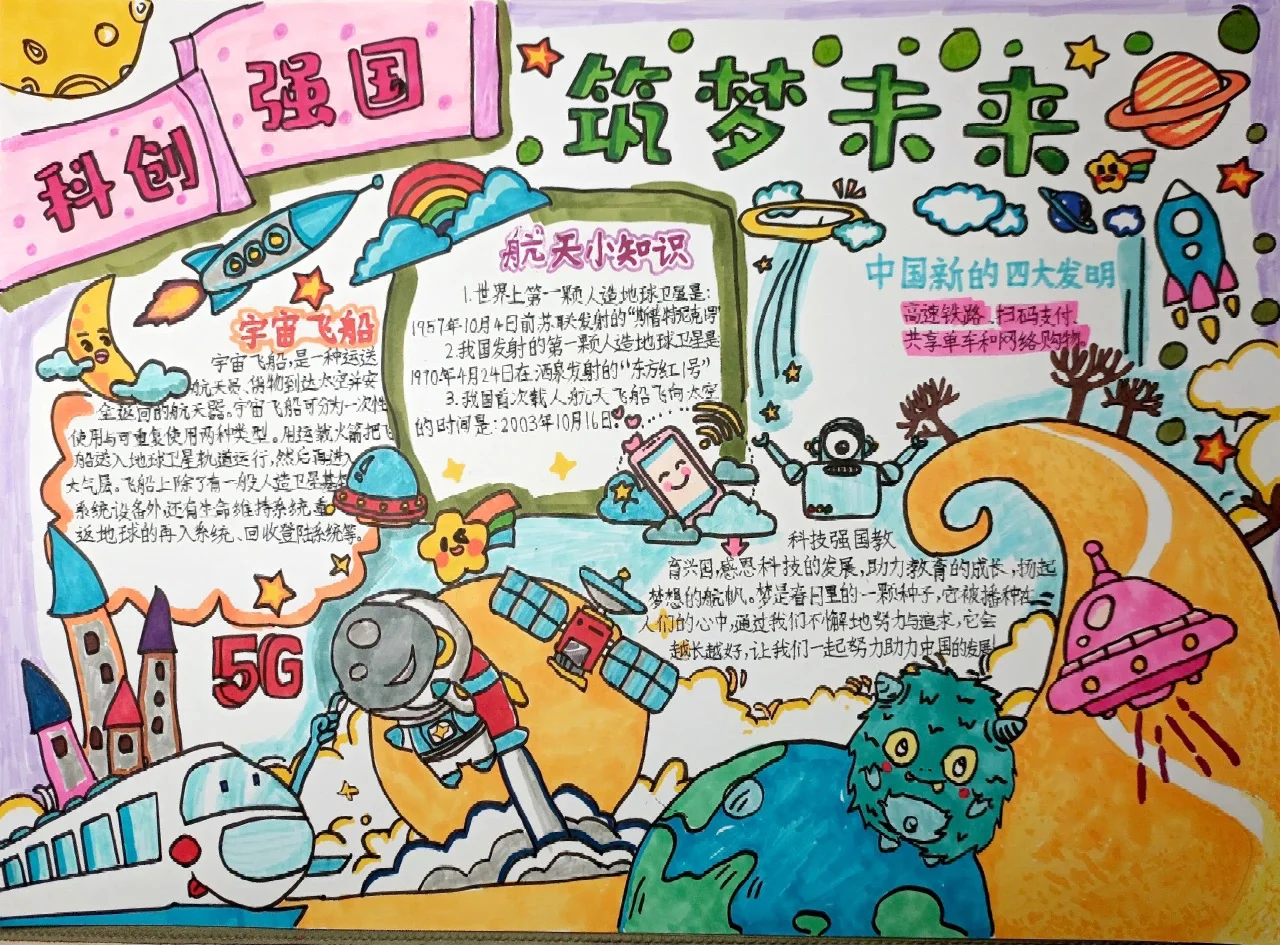 科创
强国
筑梦未来
航天小知识
1.世界上第一颗人造地球卫星是:
1957年10月4日前苏联发射的“斯普特尼克1号”
2.我国发射的第一颗人造地球卫星是
1970年4月24日在酒泉发射的“东方红1号”
3.我国首次载人航天飞船飞向太空
的时间是:2003年10月16日。
中国新的四大发明
高速铁路 扫码支付
共享单车和网络购物。
宇宙飞船
宇宙飞船,是一种运送
航天员、货物到达太空并安
全返回的航天器。宇宙飞船可分为一次性
使用与可重复使用两种类型。用运载火箭把飞
船送入地球卫星轨道运行,然后再进入
大气层。飞船上除了有一般人造卫星基本
系统设备外,还有生命维持系统,重
返地球的再入系统、回收登陆系统等。
科技强国教
育兴国,感恩科技的发展,助力教育的成长,扬起
梦想的航帆。梦是春日里的一颗种子,它被播种在
人们的心中,通过我们不懈地努力与追求,它会
越长越好,让我们一起努力助力中国的发展!
5G